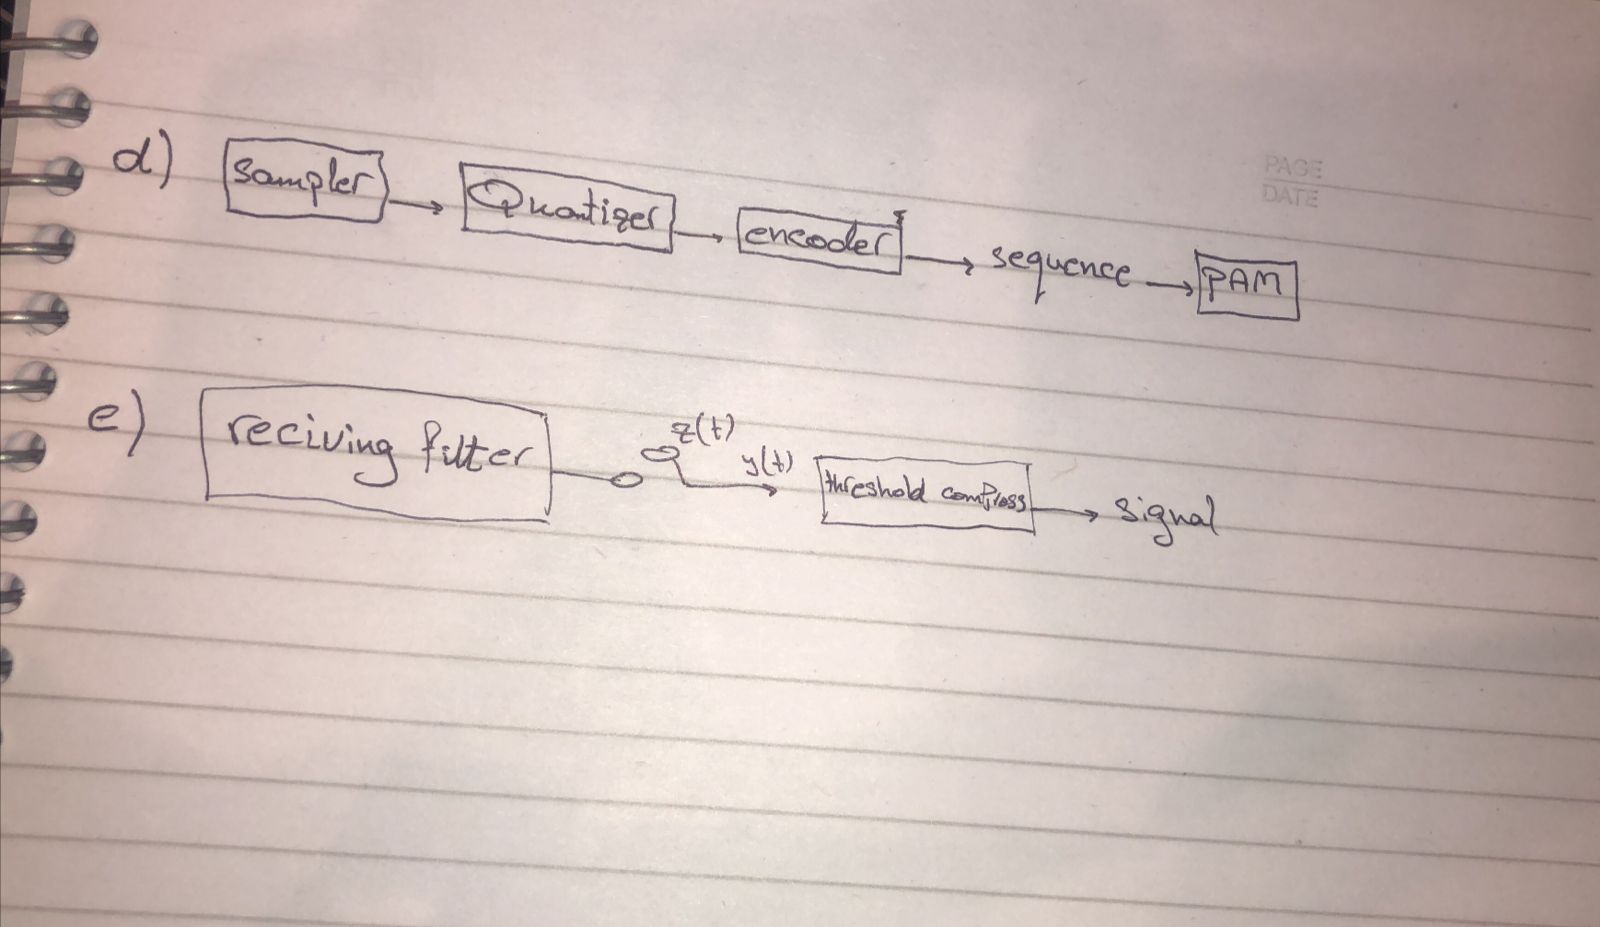 PAGE
DATE
d) Sampler → Quantizer → encoder → sequence → PAM
e) reciving filter z(t) y(t) threshold compress → signal